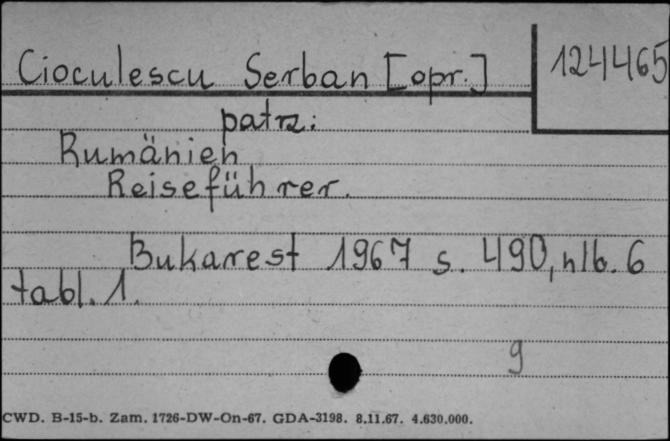 Cioculescu Serban [opr.]
124465
patrz:
Rumänien
Reiseführer.
Bukarest 1967 s. 490, nlb. 6
tabl. 1.
g
CWD. B-15-b. Zam. 1726-DW-On-67. GDA-3198. 8.11.67. 4.630.000.